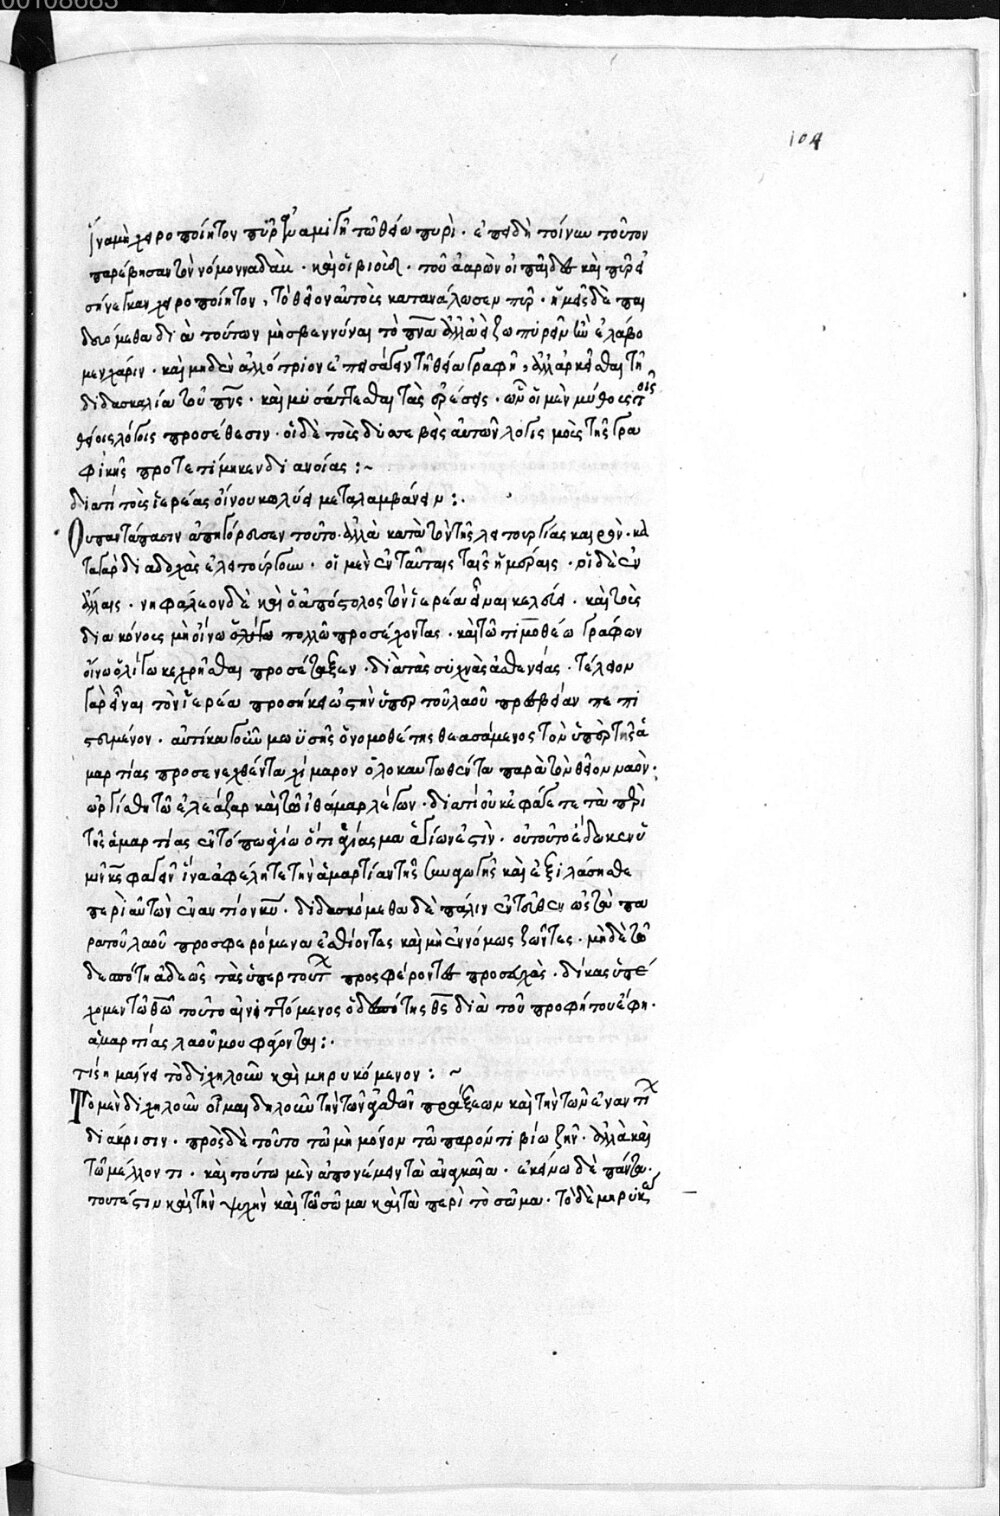 00108683
104
ἵνα μὴ χειροποίητον πῦρ ἀναμιγῆ τῶ θείω πυρὶ. ἐπειδὴ τοίνυν τοῦτον
παρέβησαν τὸν νόμον ναδὰβ. καὶ ἀβιοὺδ. τοῦ ἀαρὼν οἱ παῖδες καὶ πῦρ εἰ
σήνεγκαν χειροποίητον, τὸ θεῖον αὐτοὺς κατανάλωσεν πῦρ. ἡμεῖς δὲ παι
δευόμεθα διὰ τούτων μὴ σβεννύναι τὸ πνα ἀλλ' ἀναζωπυρεῖν ὃ ἐλάβο
μεν χάριν. καὶ μηδὲν ἀλλότριον ἐπεισάγειν τῆ θεία γραφῆ, ἀλλ' ἀρκεῖσθαι τῆ
διδασκαλία τοῦ πνς. καὶ μυσάττεσθαι τὰς αἱρέσεις. ὧν οἱ μὲν μύθους τοῖς
θείοις λόγοις προσέθεσιν. οἱ δὲ τοὺς δυσσεβεῖς αὐτῶν λογισμοὺς τῆς γρα
φικῆς προτετίμηκεν διανοίας:~
διατί τοὺς ἱερέας οἴνου κωλύει μεταλαμβάνειν:.
Οὐ παντάπασιν ἀπηγόρευσεν τοῦτο. ἀλλὰ κατὰ τὸν τῆς λειτουργίας καιρόν. κα
τὰ γὰρ διαδοχὰς ἐλειτούργουν. οἱ μὲν ἐν ταύταις ταῖς ἡμέραις. οἱ δὲ ἐν
ἄλλαις. νηφάλεον δὲ καὶ ὁ ἀπόστολος τὸν ἱερέα εἶναι κελεύει. καὶ τοὺς
διακόνους μὴ οἴνω ὀλίγω πολλῶ προσέχοντας. καὶ τῶ τιμοθέω γράφων
οἴνω ὀλίγω κεχρῆσθαι προσέταξεν. διὰ τὰς συχνὰς ἀσθενείας. τέλειον
γὰρ εἶναι τὸν ἱερέα προσήκει ὡς τὴν ὑπὲρ τοῦ λαοῦ πρεσβείαν πεπι
στευμένον. αὐτίκα γοῦν μωϋσῆς ὁ νομοθέτης θεασάμενος τὸν ὑπὲρ τῆς ἁ
μαρτίας προσενεχθέντα χίμαρον ὁλοκαυτωθέντα παρὰ τὸν θεῖον ναὸν.
ὠργίσθη τῶ ἐλεάζαρ καὶ τῶ ἰθάμαρ λέγων. διατί οὐκ ἐφάγετε τὰ περὶ
τῆς ἁμαρτίας ἐν τόπω ἁγίω ὅτι ἁγίασμα ἁγίων ἐστὶν. οὐ τοῦτο ἔδωκεν ὑ
μῖν κς φαγεῖν ἵνα ἀφέλητε τὴν ἁμαρτίαν τῆς συναγωγῆς καὶ ἐξιλάσησθε
περὶ αὐτῶν ἐναντίον κυ. διδασκόμεθα δὲ πάλιν ἐντεῦθεν ὡς τὰ πα
ρα τοῦ λαοῦ προσφερόμενα ἐσθίοντες καὶ μὴ ἐννόμως ζῶντες. μηδὲ τῶ
δεσπότη ἀδεῶς τὰς ὑπὲρ τούτων προσφέροντες προσευχὰς. δίκας ὑφέ
ξομεν τῶ θῶ τοῦτο αἰνιττόμενος ὁ δεσπότης θς διὰ τοῦ προφήτου ἔφη.
ἁμαρτίας λαοῦ μου φάγονται:.
τί σημαίνει τὸ διχηλοῦν καὶ μηρυκόμενον:~
Τὸ μὲν διχηλοῦν οἶμαι δηλοῦν τὴν τῶν ἀγαθῶν πράξεων καὶ τὴν τῶν ἐναντίων
διάκρισιν. πρὸς δὲ τοῦτο τῶ μὴ μόνον τῶ παρόντι βίω ζῆν. ἀλλὰ καὶ
τῶ μέλλοντι. καὶ τούτω μὲν ἀπονέμειν τὰ ἀναγκαῖα. ἐκείνω δὲ πάντα.
τουτέστιν καὶ τὴν ψυχὴν καὶ τὸ σῶμα καὶ τὰ περὶ τὸ σῶμα. τὸ δὲ μηρυκα